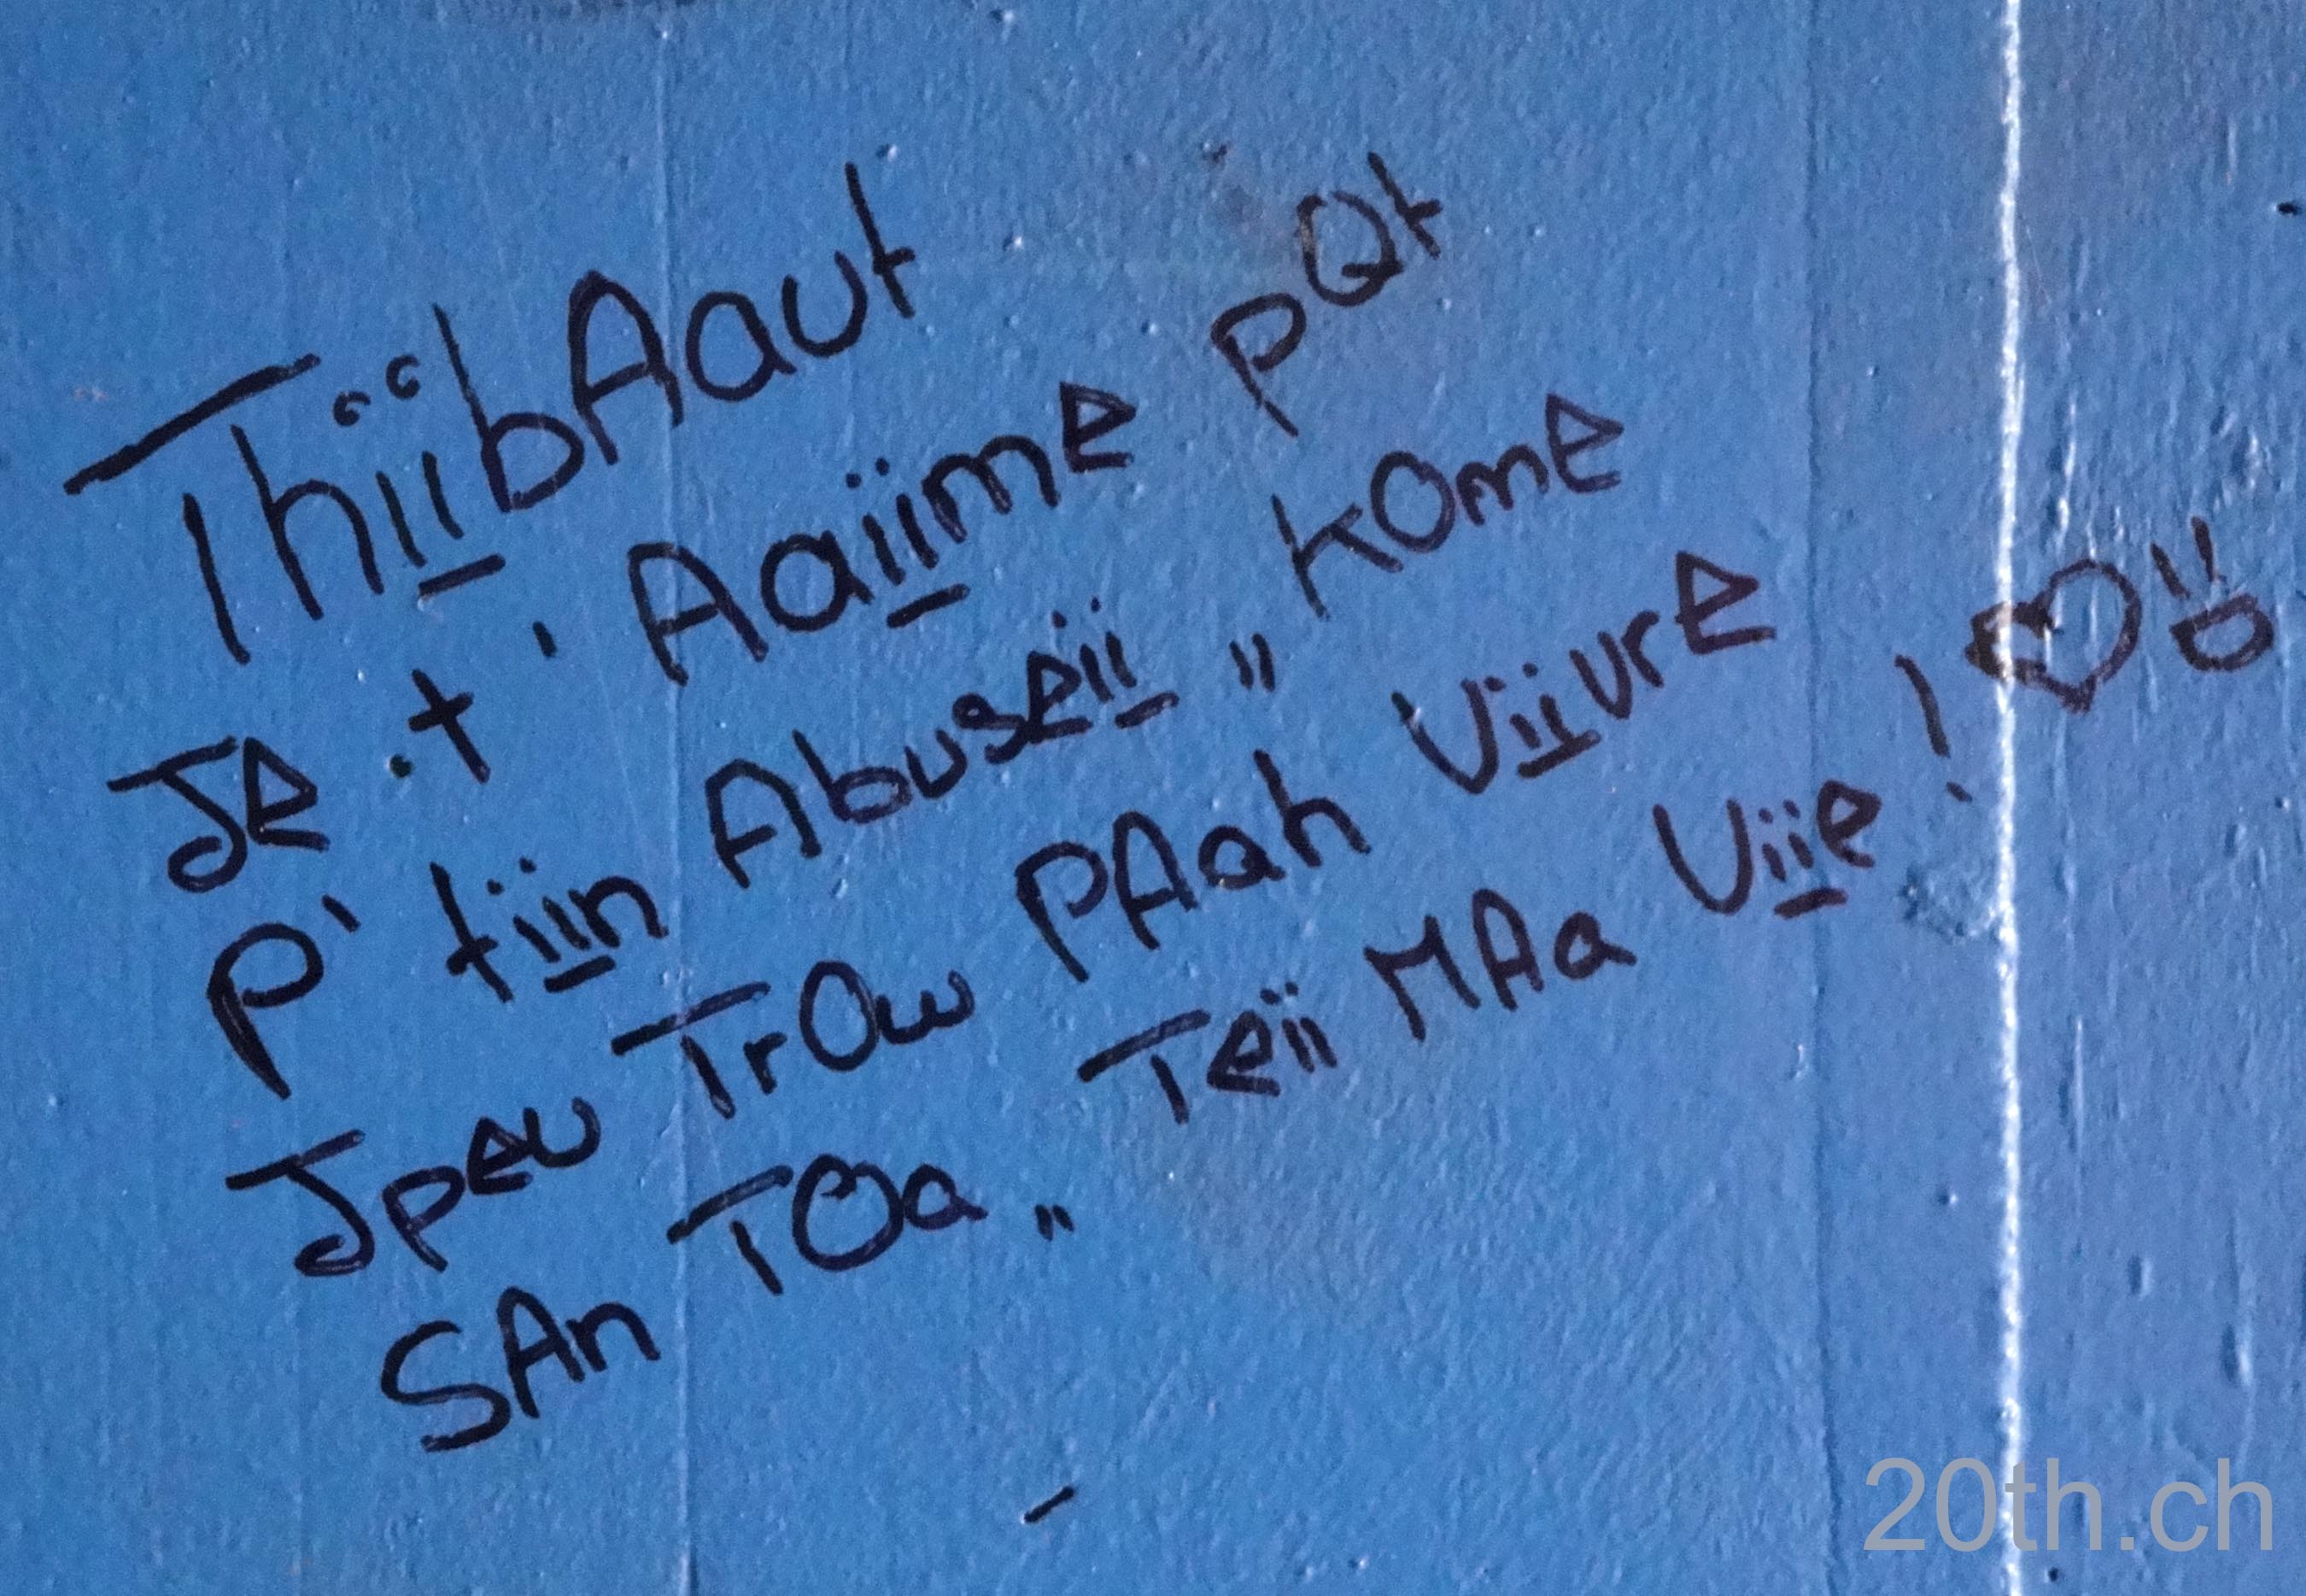 ThiibAaut
Je t'Aaiime pQt
P'tiin Abuseii " kOme
Jpeu TrOw PAah Viivre
SAn TOa " Teii MAa Viie ! ♡ =D
20th.ch